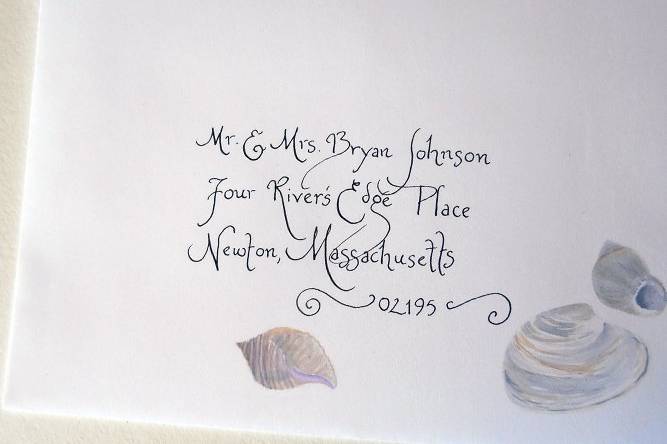 Mr. & Mrs. Bryan Johnson
Four River's Edge Place
Newton, Massachusetts
02195